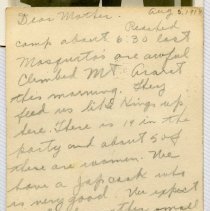 Dear Mother. Aug 5, 1919
Reached
camp about 6:30 last
Mosquitos are awful
Climbed Mt Ararat
this morning. They
feed us like Kings up
here. There is 19 in the
party and about 5 of
there are women. We
have a Jap cook who
is very good. We expect
this small